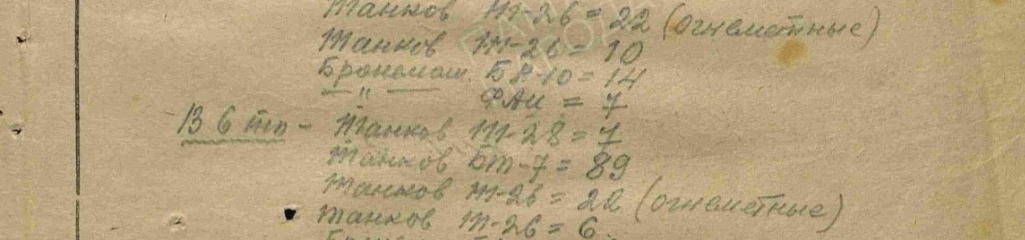 Танков Т-26 = 22 (огнеметные)
Танков Т-26 = 10
Бронемаш. БА-10 = 14
" ФАИ = 7
В 6 тп - Танков Т-28 = 7
Танков БТ-7 = 89
Танков Т-26 = 22 (огнеметные)
Танков Т-26 = 6